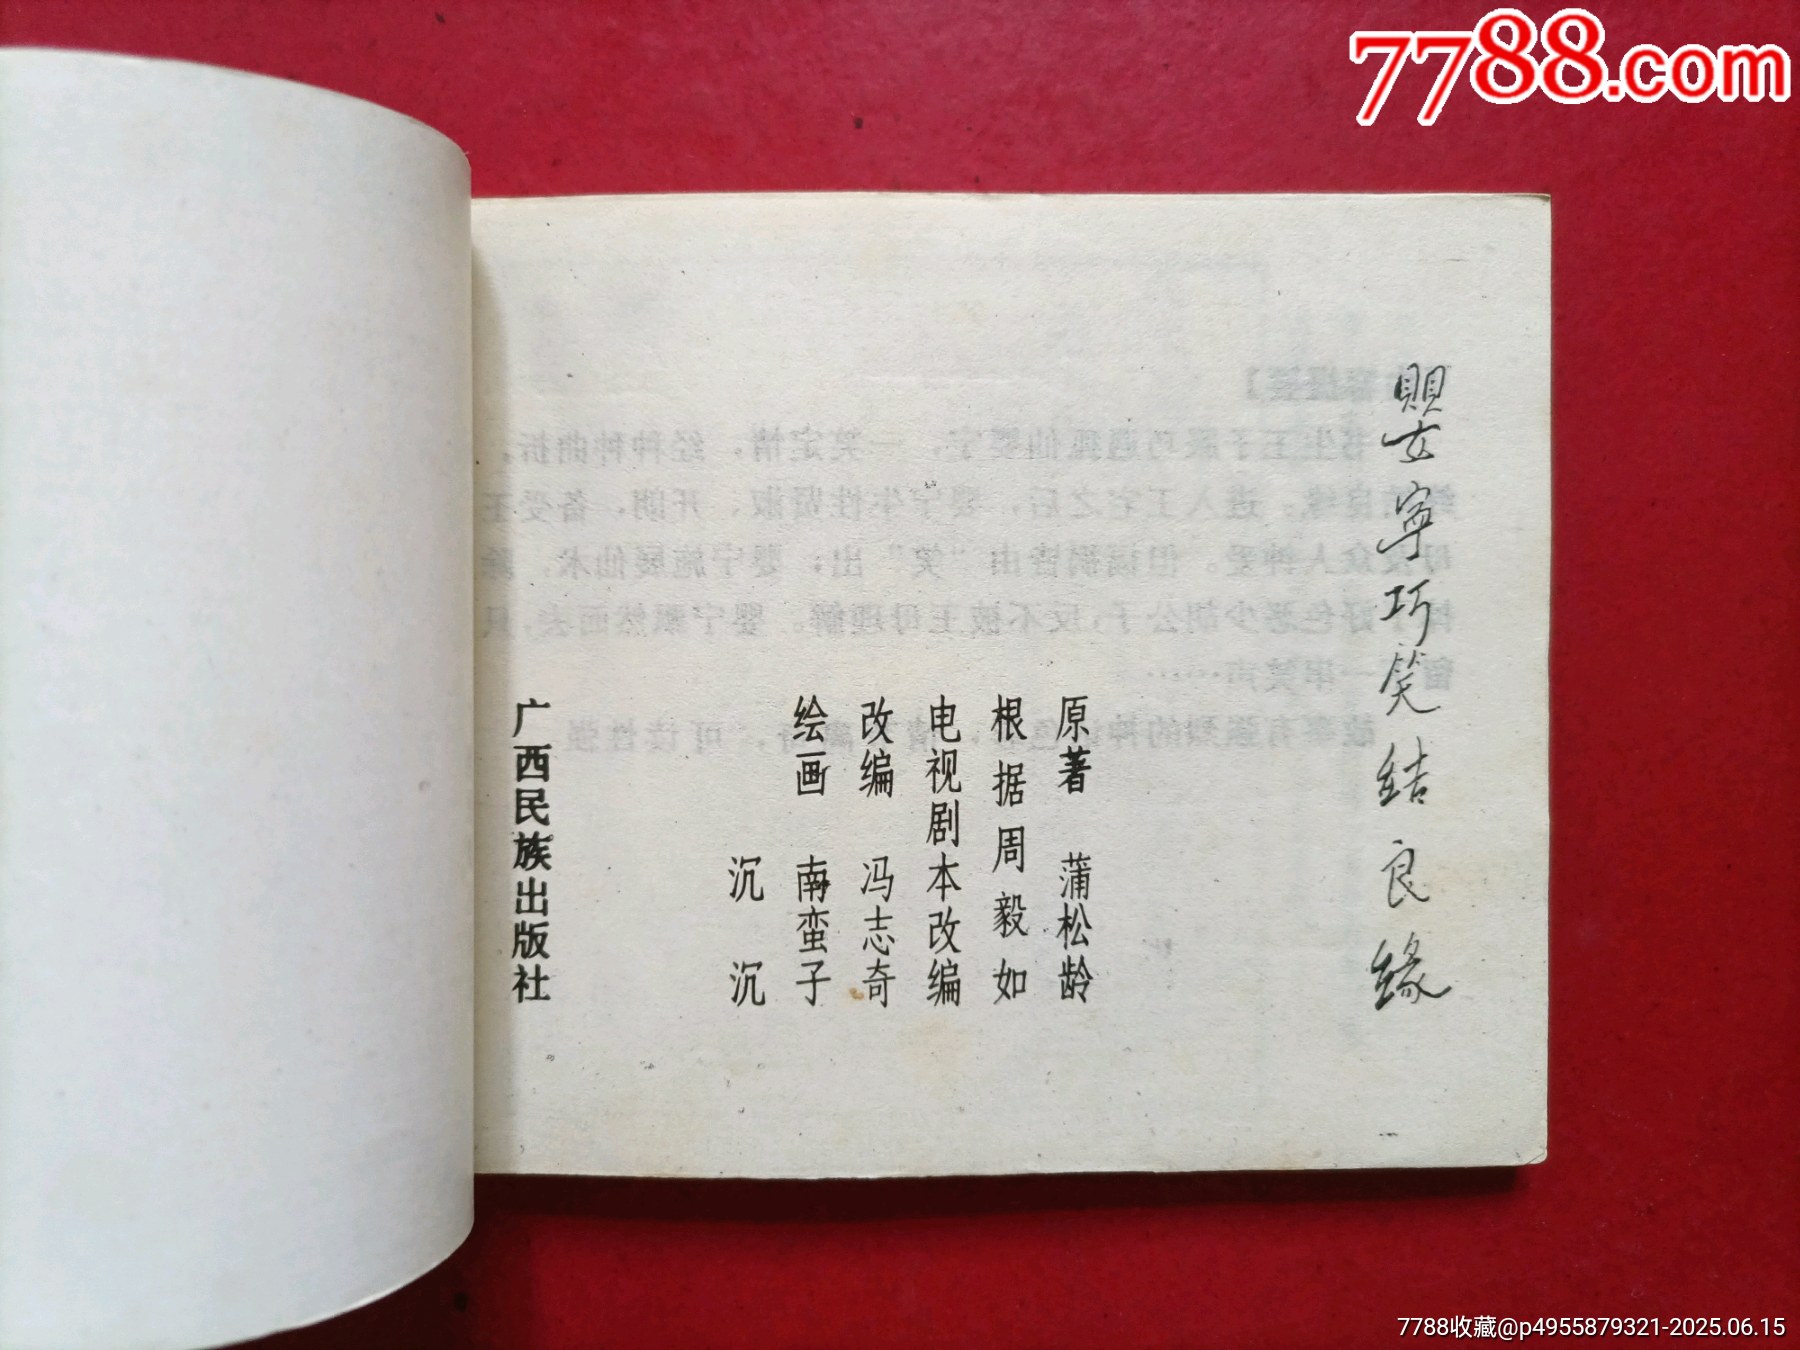 7788.com
嬰寧巧笑結良緣
原著 蒲松龄
根据周毅如
电视剧本改编
改编 冯志奇
绘画 南蛮子
沉 沉
广西民族出版社
7788收藏@p4955879321-2025.06.15